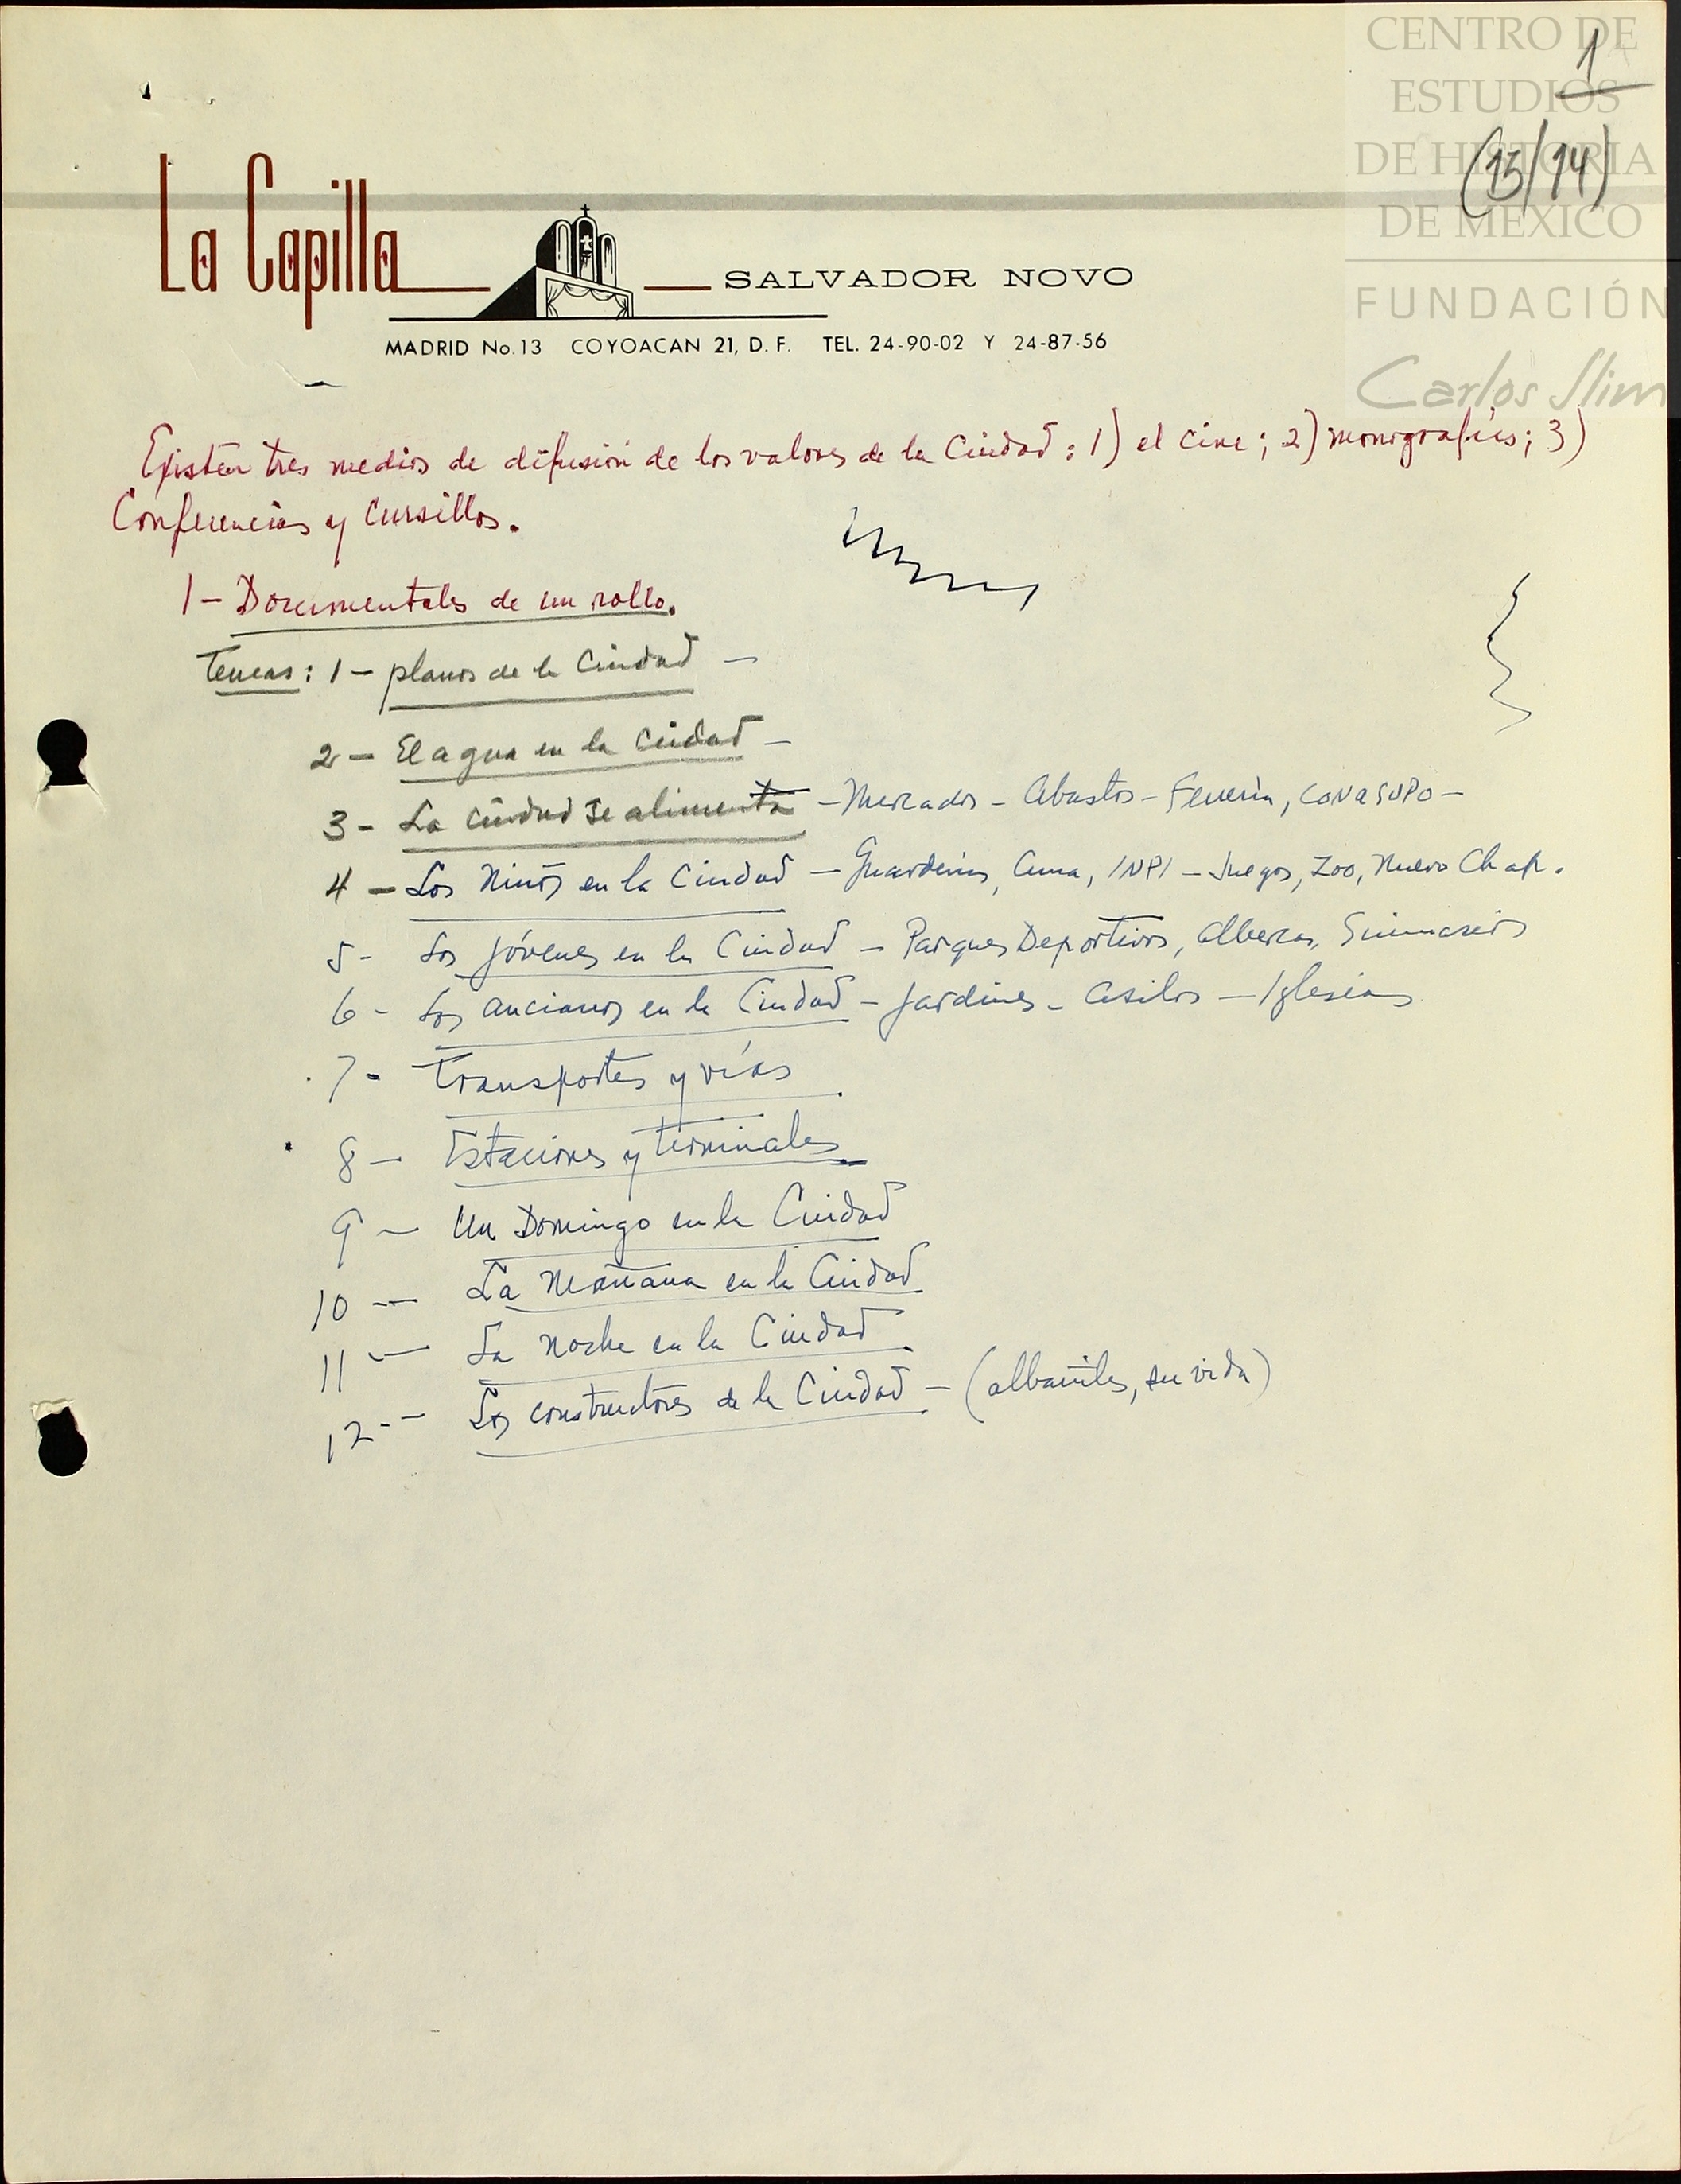 CENTRO DE
ESTUDIOS
DE HISTORIA
DE MÉXICO
FUNDACIÓN
Carlos Slim
1
(15/14)
La Capilla
SALVADOR NOVO
MADRID No. 13 COYOACAN 21, D. F. TEL. 24-90-02 Y 24-87-56
Existen tres medios de difusión de los valores de la Ciudad: 1) el cine; 2) monografías; 3)
Conferencias y Cursillos.
1 – Documentales de un rollo.
Temas: 1 – planos de la Ciudad –
2 – El agua en la Ciudad –
3 – La ciudad se alimenta – Mercados – Abastos – Ferrería, CONASUPO –
4 – Los Niños en la Ciudad – Guarderías, Cuna, INPI – Juegos, Zoo, Nuevo Chap.
5 - Los jóvenes en la Ciudad – Parques Deportivos, albercas, Gimnasios
6 - Los ancianos en la Ciudad – Jardines – Asilos – Iglesias
7 - Transportes y vías
8 – Estaciones y terminales
9 – Un Domingo en la Ciudad
10 – La Mañana en la Ciudad
11 – La noche en la Ciudad
12 -- Los constructores de la Ciudad – (albañiles, su vida)